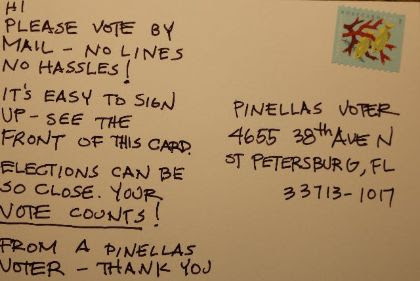 HI
PLEASE VOTE BY
MAIL - NO LINES
NO HASSLES!
IT'S EASY TO SIGN
UP - SEE THE
FRONT OF THIS CARD.
ELECTIONS CAN BE
SO CLOSE. YOUR
VOTE COUNTS!
FROM A PINELLAS
VOTER - THANK YOU
PINELLAS VOTER
4655 38th AVE N
ST PETERSBURG, FL
33713-1017